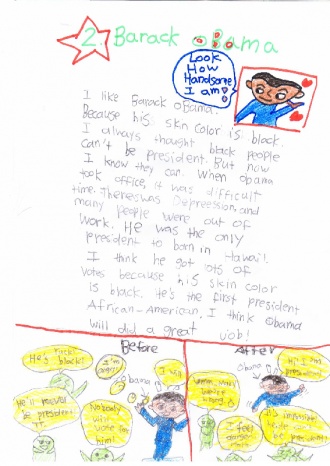 2. Barack oBama
Look
How
Handsome
I am!
I like Barack oBama.
Because his skin color is black.
I always thought black people
can't be president. But now
I know they can. When obama
took office, it was difficult
time. There was Depression, and
many people were out of
work. He was the only
president to born in Hawaii.
I think he got lots of
votes because his skin color
is black. He's the first president
African-American. I think Obama
will did a great job!
Before
After
He's black!
I'm
He'll never
be president
TT.
Nobody
will
vote for
him!
obama
obama
hi! I am
president.
I feel